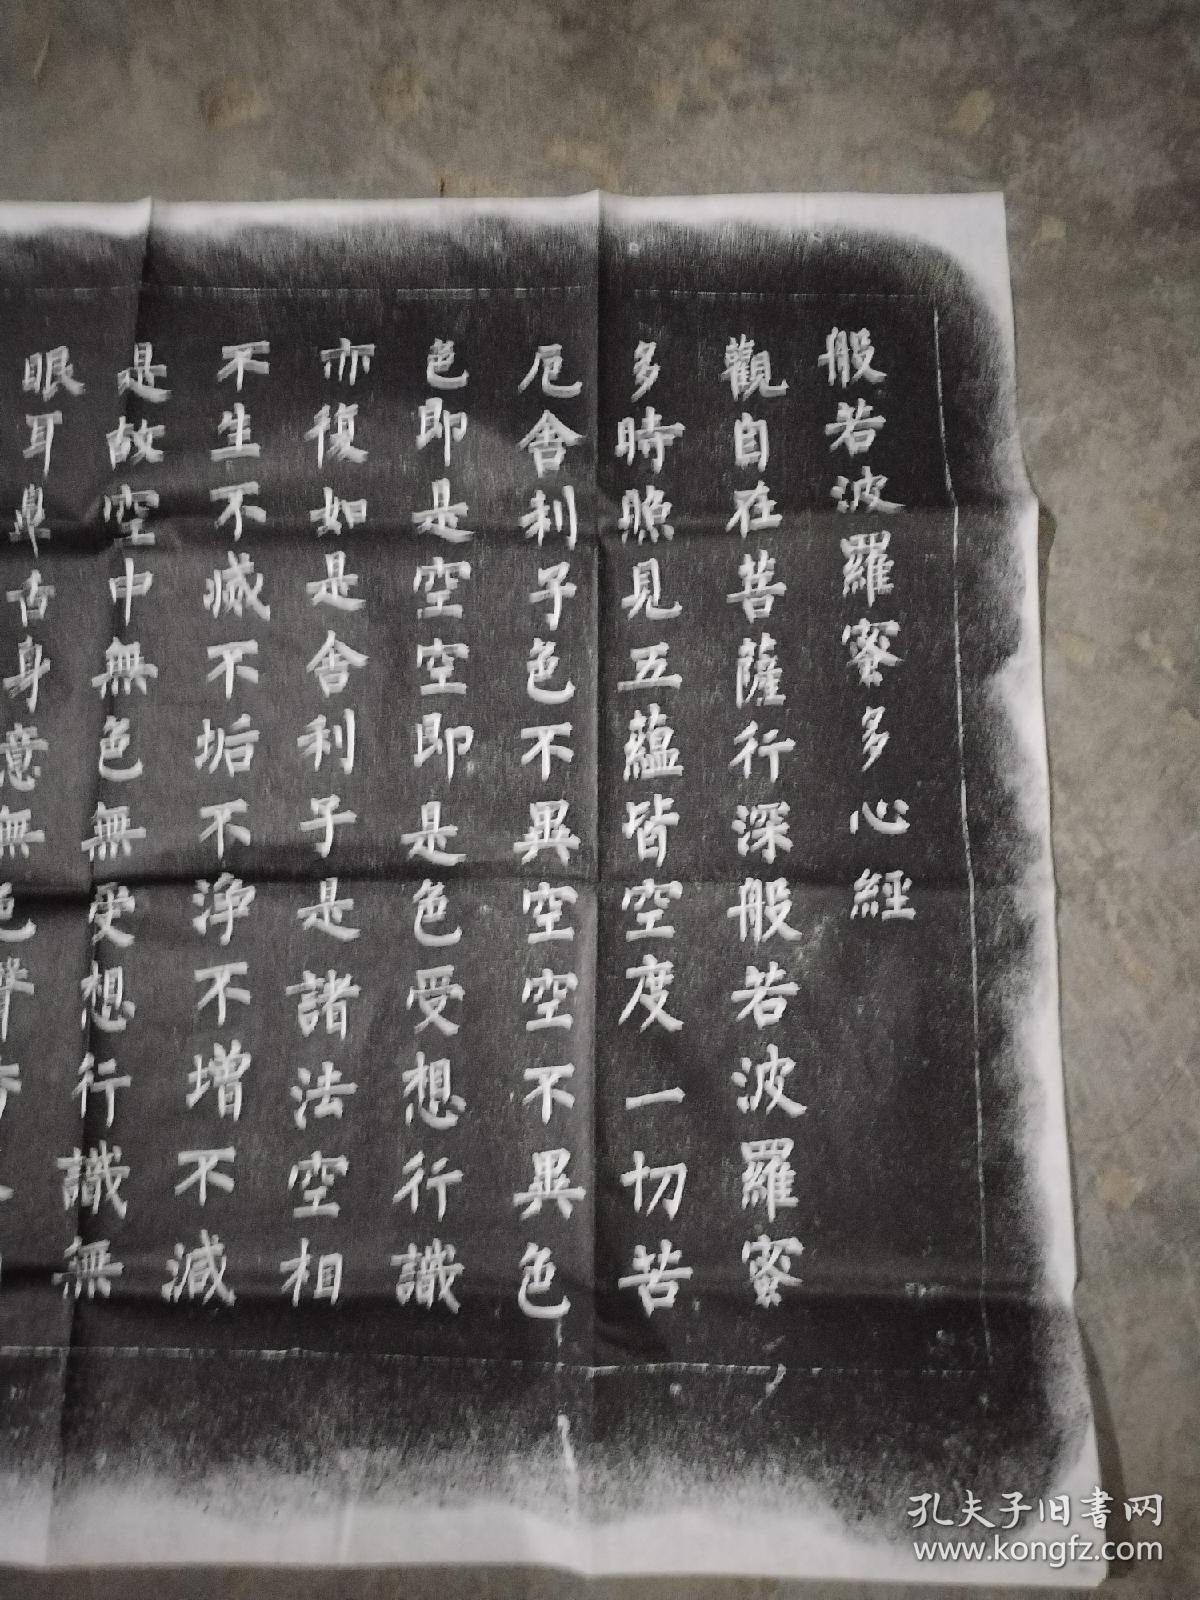 般若波羅蜜多心經
觀自在菩薩行深般若波羅蜜
多時照見五蘊皆空度一切苦
厄舍利子色不異空空不異色
色即是空空即是色受想行識
亦復如是舍利子是諸法空相
不生不滅不垢不淨不增不減
是故空中無色無受想行識無
眼耳鼻舌身意無色聲香
孔夫子旧書网
www.kongfz.com